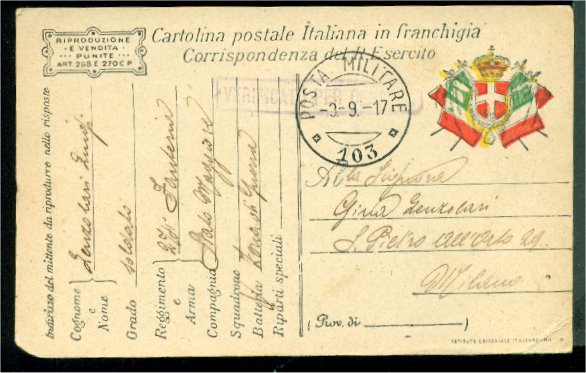 RIPRODUZIONE
E VENDITA
PUNITE
ART. 268 E 270 C P
Cartolina postale Italiana in franchigia
Corrispondenza del R. Esercito
VERIFICATO
POSTA MILITARE
-3-9.-17
103
Indirizzo del mittente da riprodurre nelle risposte
Cognome e Nome Luigi
Grado soldato
Reggimento e Arma Fanteria
Compagnia Stato Maggiore
Squadrone
Batteria Zona di Guerra
Riparti speciali
Alla Signora
Gina
S. Pietro all'Orto 29
Milano
(Prov. di )
ISTITUTO EDITORIALE ITALIANO